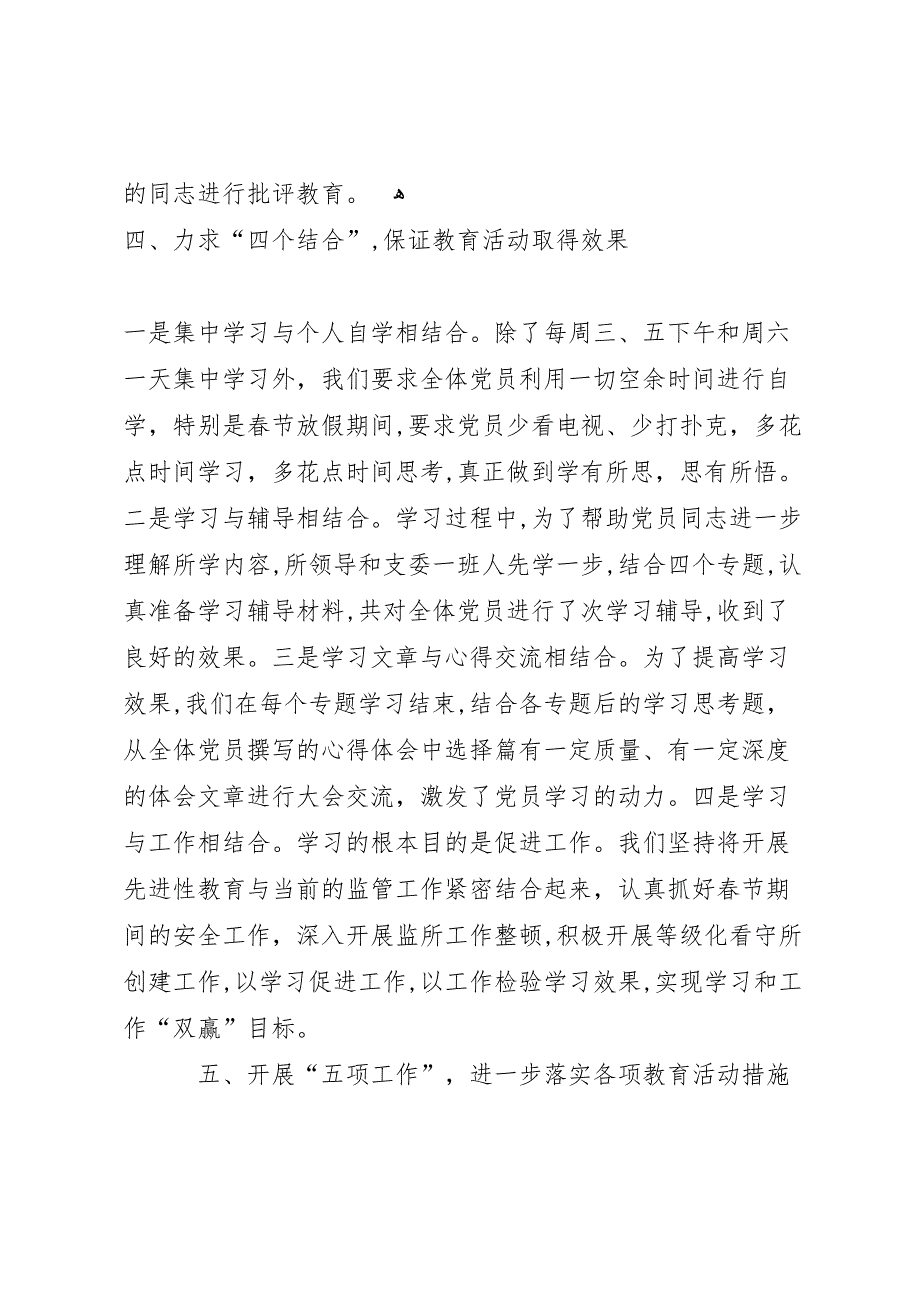 的同志进行批评教育。 ﻫ
四、力求“四个结合”,保证教育活动取得效果
一是集中学习与个人自学相结合。除了每周三、五下午和周六
一天集中学习外，我们要求全体党员利用一切空余时间进行自
学，特别是春节放假期间,要求党员少看电视、少打扑克，多花
点时间学习，多花点时间思考,真正做到学有所思，思有所悟。
二是学习与辅导相结合。学习过程中,为了帮助党员同志进一步
理解所学内容,所领导和支委一班人先学一步,结合四个专题,认
真准备学习辅导材料,共对全体党员进行了次学习辅导,收到了
良好的效果。三是学习文章与心得交流相结合。为了提高学习
效果,我们在每个专题学习结束,结合各专题后的学习思考题，
从全体党员撰写的心得体会中选择篇有一定质量、有一定深度
的体会文章进行大会交流，激发了党员学习的动力。四是学习
与工作相结合。学习的根本目的是促进工作。我们坚持将开展
先进性教育与当前的监管工作紧密结合起来，认真抓好春节期
间的安全工作，深入开展监所工作整顿,积极开展等级化看守所
创建工作,以学习促进工作,以工作检验学习效果,实现学习和工
作“双赢”目标。
五、开展“五项工作”，进一步落实各项教育活动措施